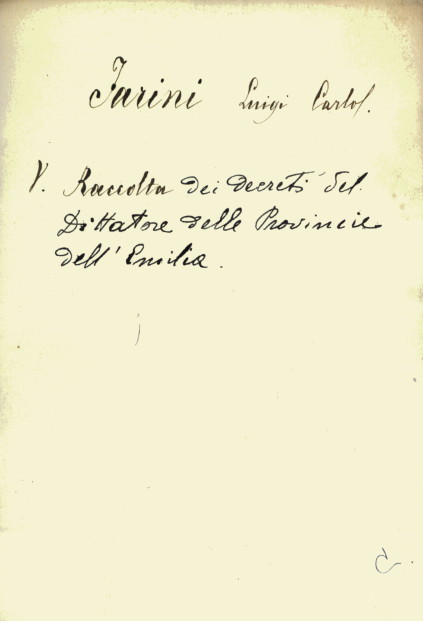 Farini Luigi Carlo.
V. Raccolta dei decreti del
Dittatore delle Provincie
dell' Emilia.
C.